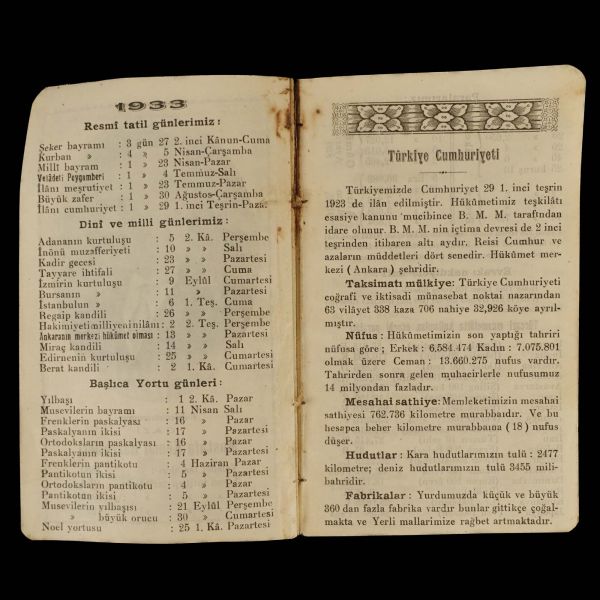 1933
Resmî tatil günlerimiz :
Şeker bayramı : 3 gün 27 2. inci Kânun-Cuma
Kurban » : 4 » 5 Nisan-Çarşamba
Millî bayram : 1 » 23 Nisan-Pazar
Velâdeti Peygamberi : 1 » 4 Temmuz-Salı
İlânı meşrutiyet : 1 » 23 Temmuz-Pazar
Büyük zafer : 1 » 30 Ağustos-Çarşamba
İlânı cumhuriyet : 1 » 29 1. inci Teşrin-Pazar
Dinî ve milli günlerimiz :
Adananın kurtuluşu : 5 2. Kâ. Perşembe
İnönü muzafferiyeti : 10 » » Salı
Kadir gecesi : 23 » » Pazartesi
Tayyare ihtifali : 27 » » Cuma
İzmirin kurtuluşu : 9 Eylül Cumartesi
Bursanın » : 11 » Pazartesi
İstanbulun » : 6 1. Teş. Cuma
Regaip kandili : 26 » » Perşembe
Hakimiyeti milliyenin ilânı : 2 2. Teş. Perşembe
Ankaranın merkezi hükûmet olması : 13 » » Pazartesi
Miraç kandili : 14 » » Salı
Edirnenin kurtuluşu : 25 » » Cumartesi
Berat kandili : 2 1. Kâ. Cumartesi
Başlıca Yortu günleri :
Yılbaşı : 1 2. Kâ. Pazar
Musevilerin bayramı : 11 Nisan Salı
Frenklerin paskalyası : 16 » Pazar
Paskalyanın ikisi : 17 » Pazartesi
Ortodoksların paskalyası : 16 » Pazar
Paskalyanın ikisi : 17 » Pazartesi
Frenklerin pantikotu : 4 Haziran Pazar
Pantikotun ikisi : 5 » Pazartesi
Ortodoksların pantikotu : 4 » Pazar
Pantikotun ikisi : 5 » Pazartesi
Musevilerin yılbaşısı : 21 Eylül Perşembe
» büyük orucu : 30 » Cumartesi
Noel yortusu : 25 1. Kâ. Pazartesi
Türkiye Cumhuriyeti
Türkiyemizde Cumhuriyet 29 1. inci teşrin
1923 de ilân edilmiştir. Hükûmetimiz teşkilâtı
esasiye kanunu mucibince B. M. M. tarafından
idare olunur. B. M. M. nin içtima devresi de 2 inci
teşrinden itibaren altı aydır. Reisi Cumhur ve
azaların müddetleri dört senedir. Hükûmet mer-
kezi ( Ankara ) şehridir.
Taksimatı mülkiye: Türkiye Cumhuriyeti
coğrafi ve iktisadi münasebat noktai nazarından
63 vilâyet 338 kaza 706 nahiye 32,926 köye ayrıl-
mıştır.
Nüfus : Hükûmetimizin son yaptığı tahriri
nüfusa göre ; Erkek : 6,584.474 Kadın : 7,075.801
olmak üzere Ceman : 13.660.275 nufus vardır.
Tahrirden sonra gelen muhacirlerle nufusumuz
14 milyondan fazladır.
Mesahai sathiye: Memleketimizin mesahai
sathiyesi 762.736 kilometre murabbaıdır. Ve bu
hesapca beher kilometre murabbaına (18) nufus
düşer.
Hudutlar : Kara hudutlarımızın tulü : 2477
kilometre; deniz hudutlarımızın tulü 3455 mili-
bahridir.
Fabrikalar : Yurdumuzda küçük ve büyük
360 dan fazla fabrika vardır bunlar gittikçe çoğal-
makta ve Yerli mallarimize rağbet artmaktadır.